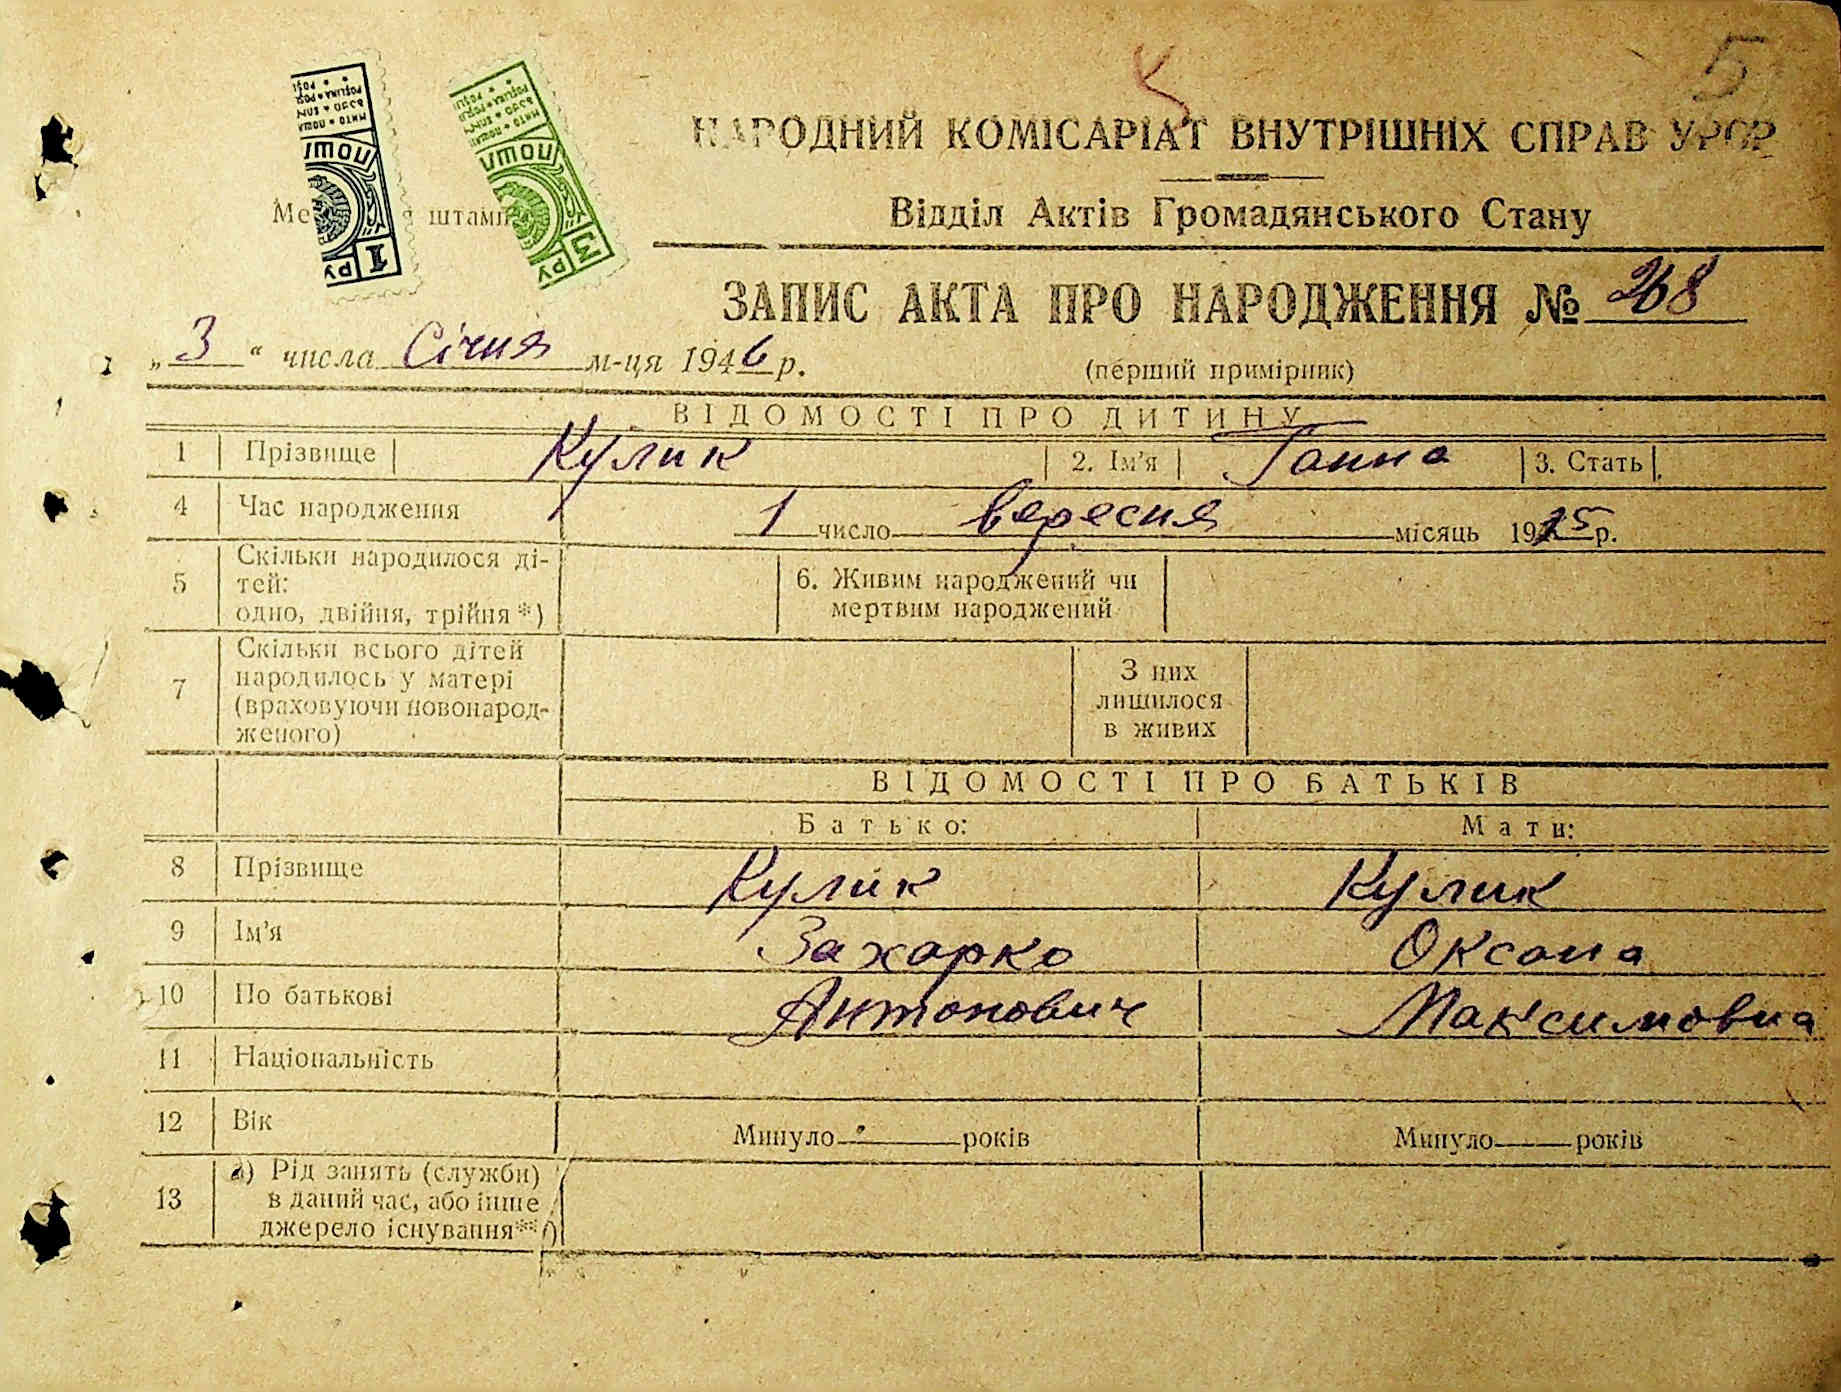 5
НАРОДНИЙ КОМІСАРІАТ ВНУТРІШНІХ СПРАВ УРСР
Відділ Актів Громадянського Стану
штамп
1 РУ
3 РУ
ЗАПИС АКТА ПРО НАРОДЖЕННЯ № 268
„3“ числа Січня м-ця 1946 р.
(перший примірник)
ВІДОМОСТІ ПРО ДИТИНУ
1 Прізвище Кулик 2. Ім'я Ганна 3. Стать
4 Час народження 1 число вересня місяць 1925 р.
5 Скільки народилося ді-
тей:
одно, двійня, трійня *)
6. Живим народжений чи
мертвим народжений
7 Скільки всього дітей
народилось у матері
(враховуючи новонарод-
женого)
З них
лишилося
в живих
ВІДОМОСТІ ПРО БАТЬКІВ
Батько: Мати:
8 Прізвище Кулик Кулик
9 Ім'я Захарко Оксана
10 По батькові Антонович Максимовна
11 Національність
12 Вік Минуло років Минуло років
13 а) Рід занять (служби)
в даний час, або інше
джерело існування**)